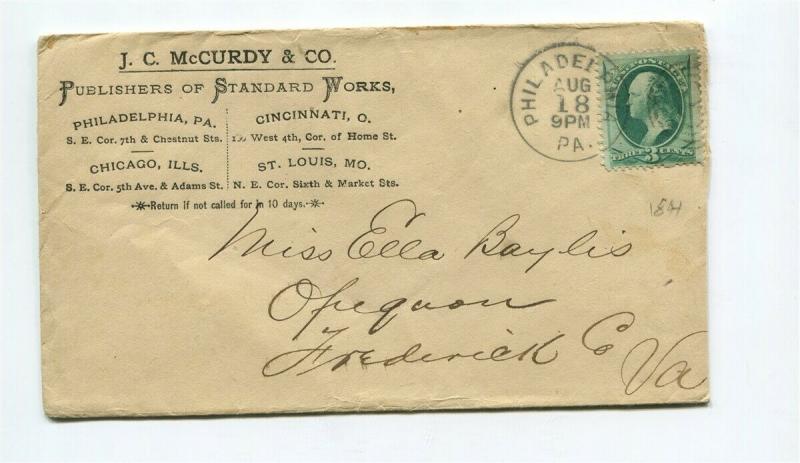 J. C. McCURDY & CO.
PUBLISHERS OF STANDARD WORKS,
PHILADELPHIA, PA.
S. E. Cor. 7th & Chestnut Sts.
CINCINNATI, O.
West 4th, Cor. of Home St.
CHICAGO, ILLS.
S. E. Cor. 5th Ave. & Adams St.
ST. LOUIS, MO.
N. E. Cor. Sixth & Market Sts.
Return if not called for in 10 days.
PHILADEL
AUG
18
9PM
PA.
U.S. POSTAGE
THREE 3 CENTS
Miss Ella Baylis
Opequon
Frederick Co
Va